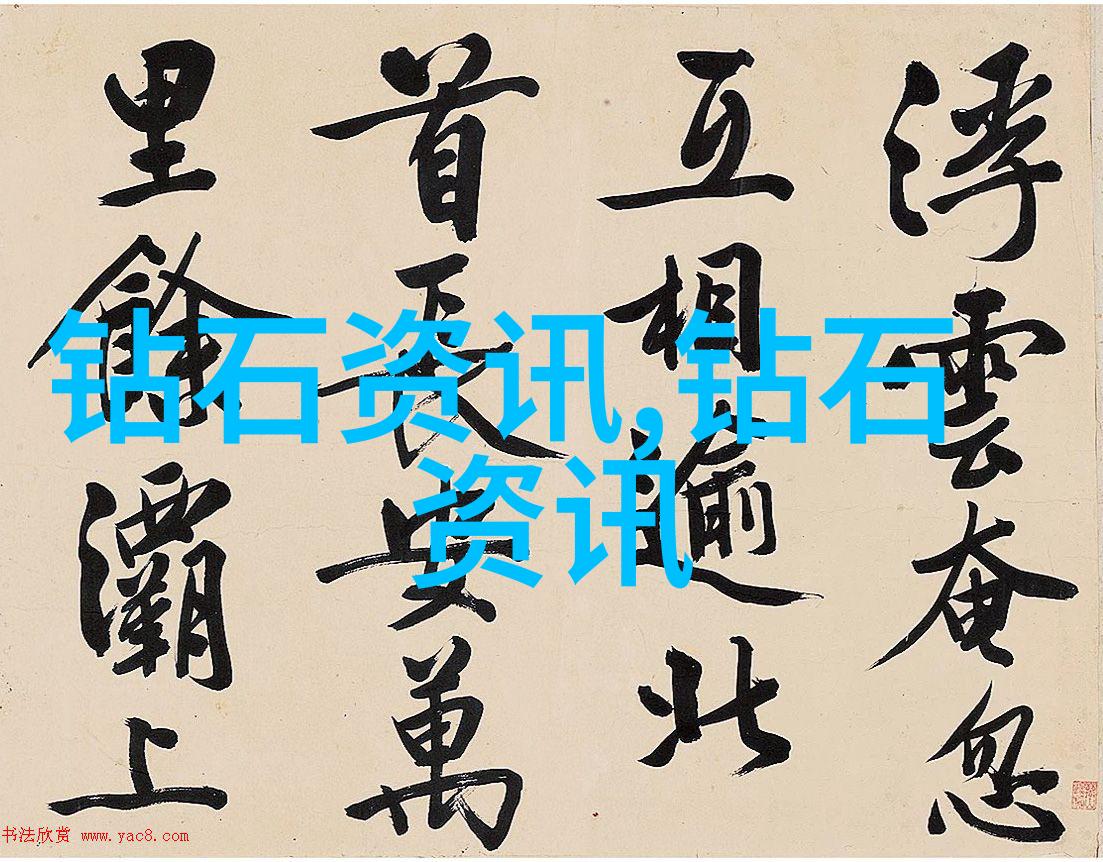 浮雲奄忽
互相逾此
首長安萬
里餘灞上
钻石资讯,钻石
资讯
书法欣赏 www.yac8.com